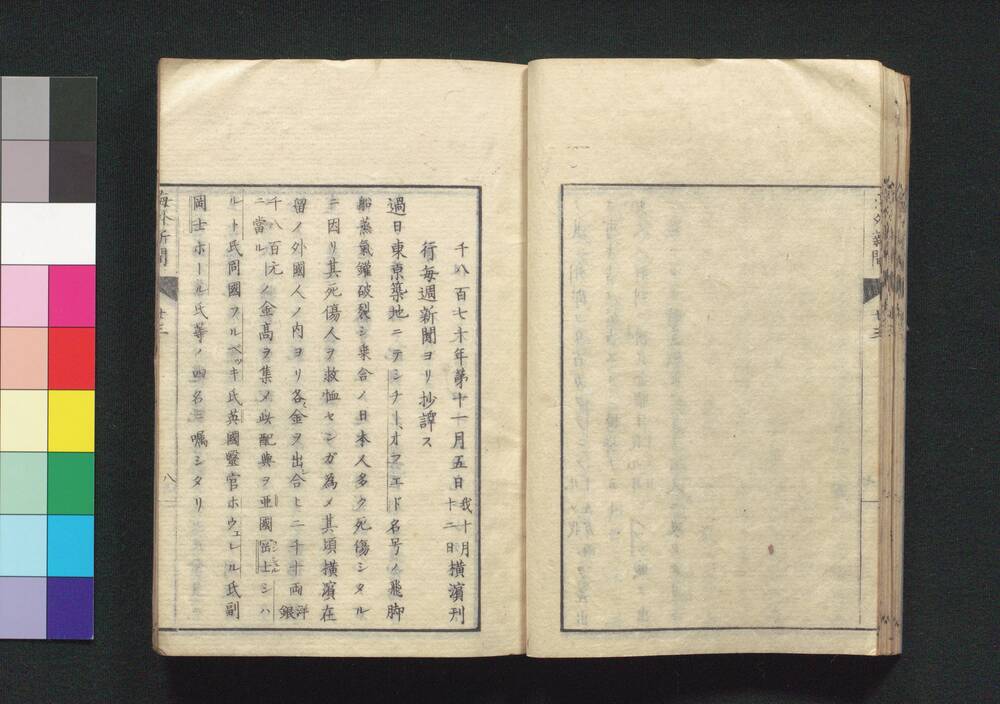 千八百七十年第十一月五日我十月十二日横濱刊
行每週新聞ヨリ抄譯ス
過日東亰築地ニテシチー、オフ、エド名号ノ飛脚
船蒸氣鑵破裂シ乗合ノ日本人多ク死傷シタル
ニ因リ其死傷人ヲ救恤センガ為メ其頃横濱在
留ノ外國人ノ内ヨリ各金ヲ出合ヒ二千十両洋銀
千八百元ニ當ルノ金高ヲ集メ此配與ヲ亜國岡士シハ
ルト氏同國フルベッキ氏英國醫官ホウェレル氏副
岡士ホール氏等ノ四名ニ嘱シタリ
海外新聞 廿三 八
海外新聞 廿三